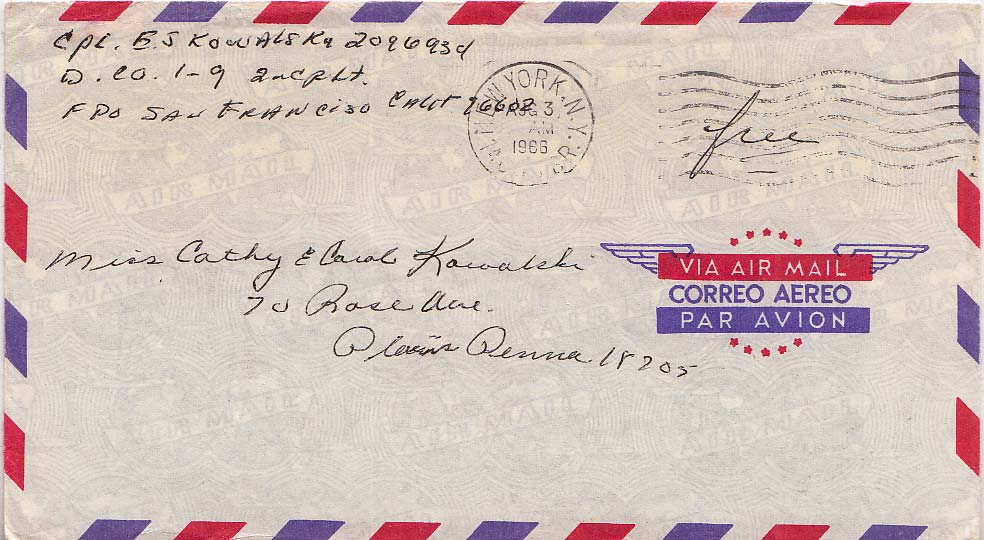 Cpl. E. J KOWALSKI 2096934
D. CO. 1-9 2nd Plt.
FPO SAN FRANCISO CALIF 96602
NEW YORK, N.Y.
AUG 3
AM
1966
free
Miss Cathy & Carol Kowalski
70 Rose Ave.
Plains Penna 18705
VIA AIR MAIL
CORREO AEREO
PAR AVION